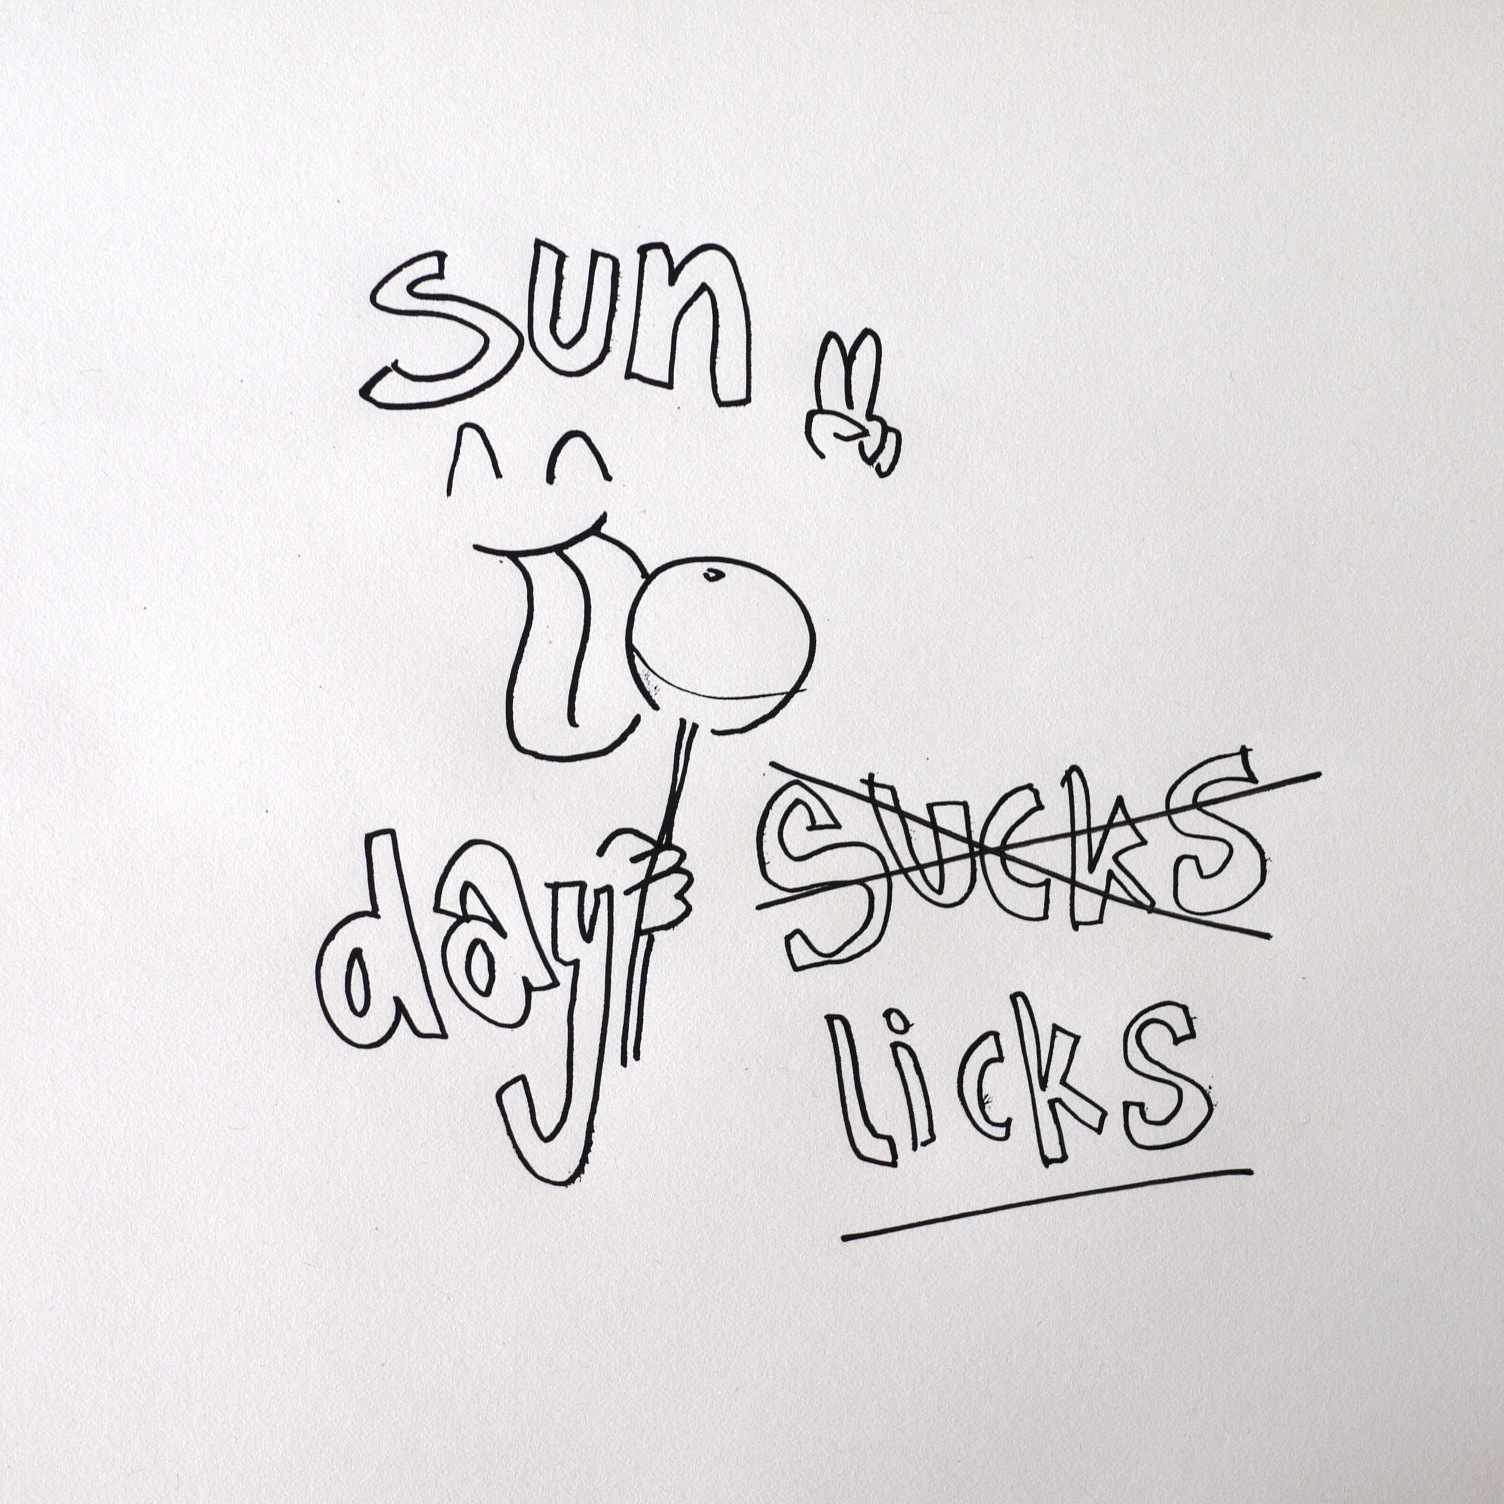 sun
day
sucks
licks